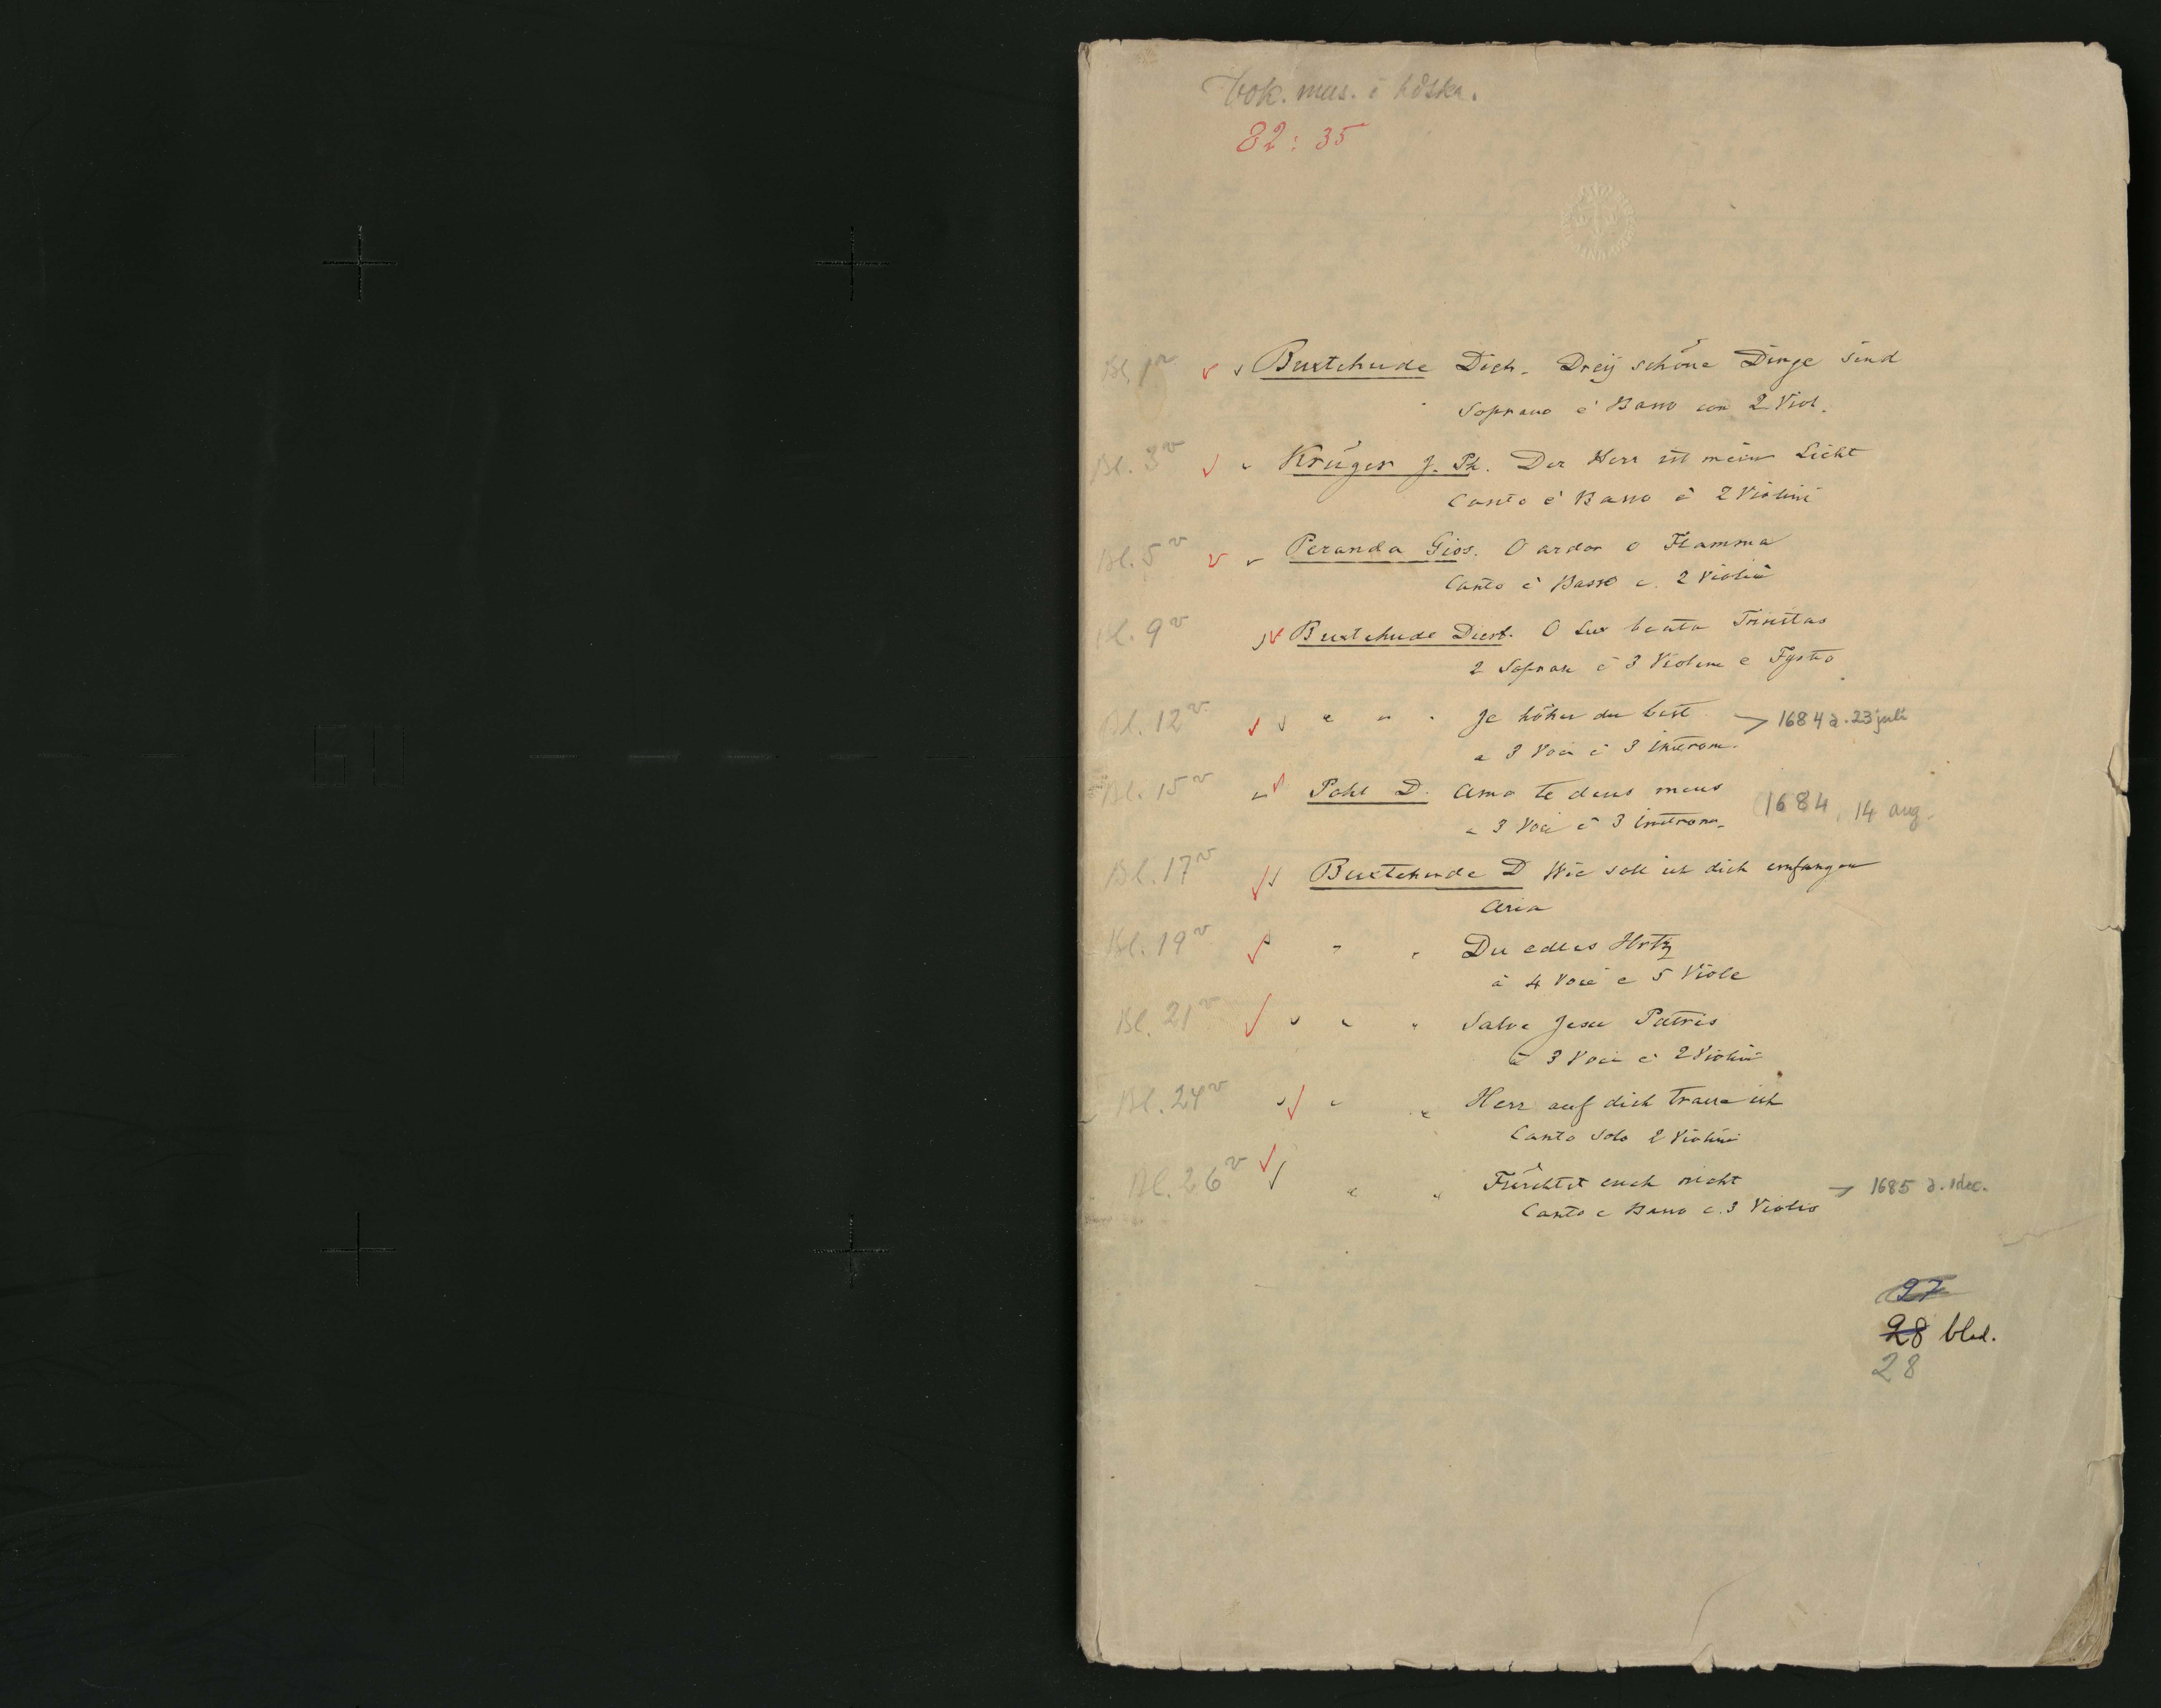 Vok. mus. i hdskr.
82: 35
Bl. 1v Buxtehude Diet. Dreij schöne Dinge sind
Soprano è Basso con 2 Viol.
Bl. 3v Krüger J. Ph. Der Herr ist mein Licht
Canto è Basso è 2 Violini
Bl. 5v Peranda Gios. O ardor o Flamma
Canto è Basso c. 2 Violini
Bl. 9v Buxtehude Diet. O Lux beata Trinitas
2 Soprani è 3 Violini e
Bl. 12v " " Je höher du bist → 1684 d. 23 juli
a 3 Voci è 3 instrom.
Bl. 15v Pohl D. Amo te deus meus (1684, 14 aug.
a 3 Voci è 3 instrom.
Bl. 17v Buxtehude D Wie soll ich dich emfangen
Aria
Bl. 19v " " Du edles Hertz
à 4 Voci e 5 Viole
Bl. 21v " " Salve Jesu Patris
à 3 Voci è 2 Violini
Bl. 24v " " Herr auf dich traue ich
Canto Solo 2 Violini
Bl. 26v " " Fürchtet euch nicht → 1685 d. 1 dec.
Canto e Basso c. 3 Violin
27
28 blad.
28